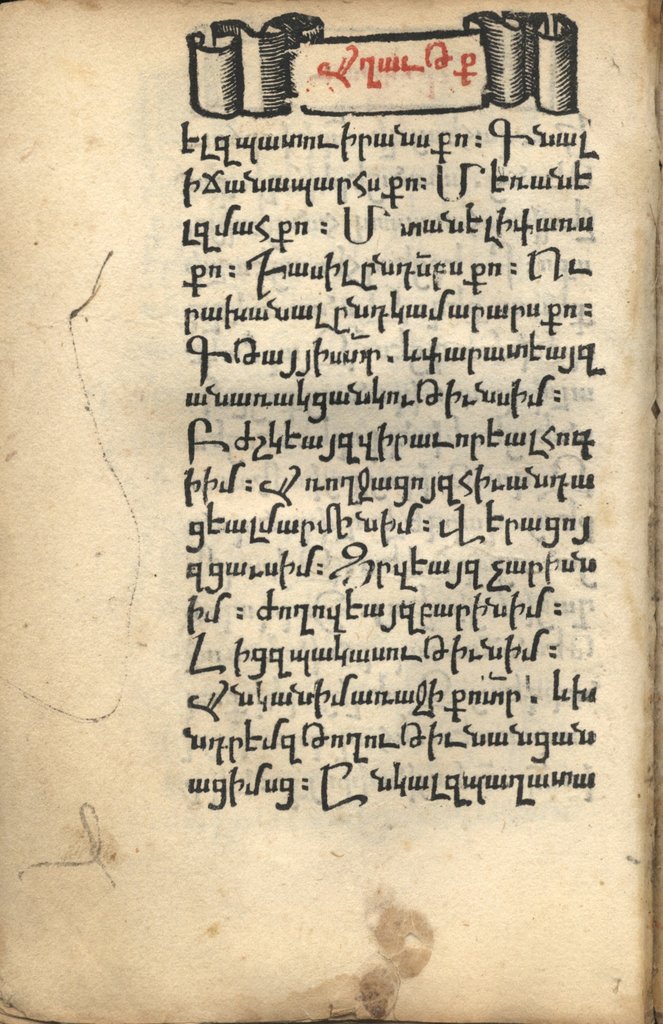 Աղաւթք
ելզպատուիրանսքո։ Գնալ
իՃանապարհսքո։ Մեռանե
լզմահքո։ Մտանելիփառս
քո։ Խասիլընդսբսքո։ Ու
րախանալընդկամարարսքո։
Գթայյիստր. ևփարատէայզ
անառակցանկութիւնսիմ։
Բժշկեայզվիրաւորեալհոգ
իիմ։ Առողջացոյզհիւանդա
ցեալմարմինիմ։ Վերացոյ
զցաւսիմ։ Ջրվեայզչարիսն
իմ։ Ժողովեայզբարինիմ։
Լիցզպակասութիւնիմ։
Անկանիմառաջիքոտր. ևխ
նդրեմզթողութիւնանցան
ացիմոց։ Ընկալզպաղատա